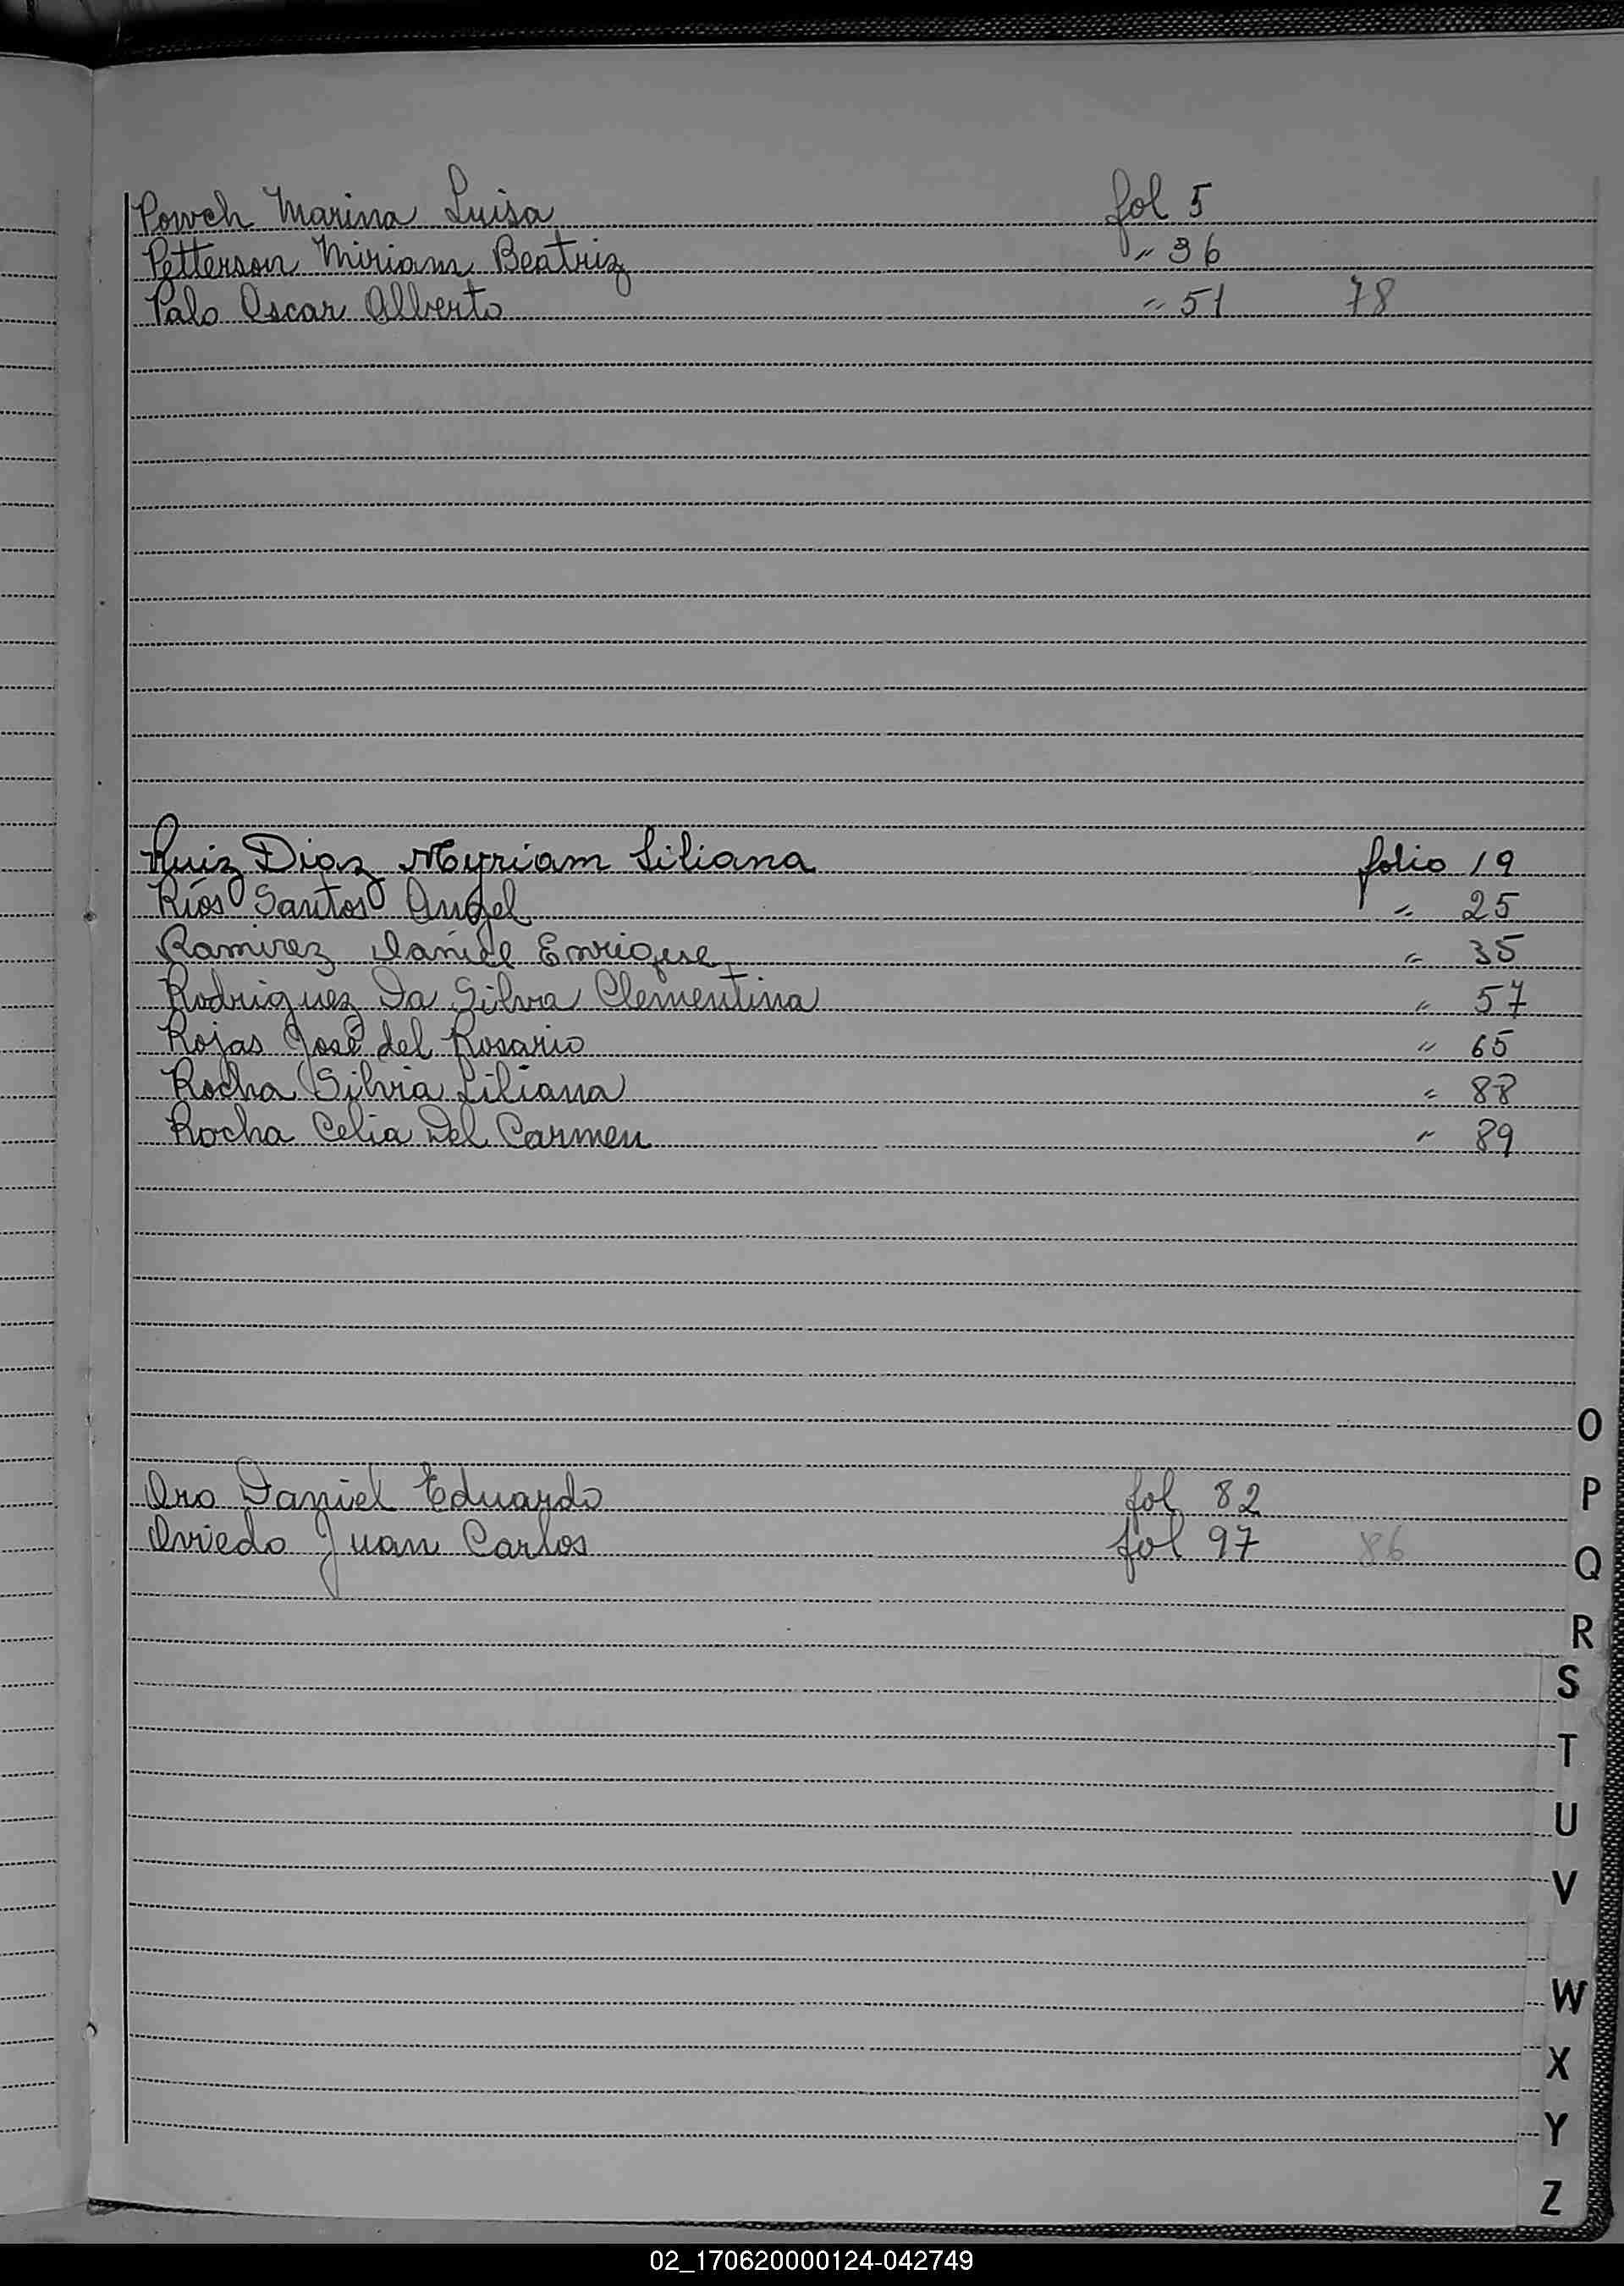 Powch Marina Luisa fol 5
Petterson Miriam Beatriz " 36
Palo Oscar Alberto " 51 78
Ruiz Diaz Myriam Liliana folio 19
Ríos Santos Angel " 25
Ramirez Daniel Enrique " 35
Rodriguez Da Silva Clementina " 57
Rojas José del Rosario " 65
Rocha Silvia Liliana " 88
Rocha Celia Del Carmen " 89
Oro Daniel Eduardo fol 82
Oviedo Juan Carlos fol 97 86
O
P
Q
R
S
T
U
V
W
X
Y
Z
02_170620000124-042749